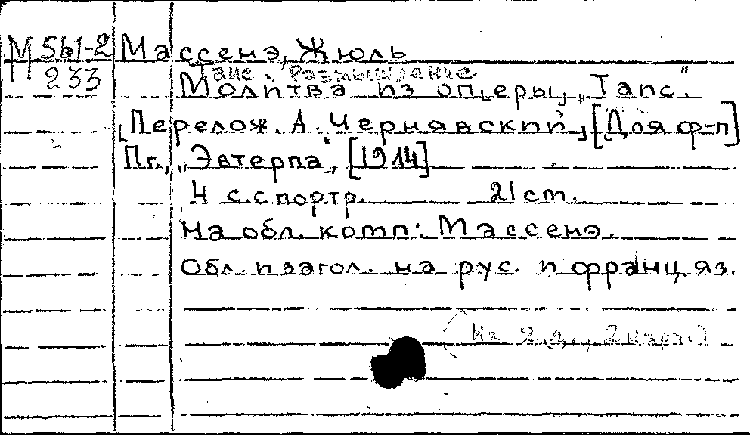 М 561-2 Массенэ, Жюль
233 Таис. Размышление
Молитва из оперы „Таис".
[Перелож. А. Чернявский], [Для ф-п]
Пг., „Эвтерпа", [1914]
4 с. с портр. 21 cm.
На обл. комп: Массенэ.
Обл. и загол. на рус. и франц. яз.